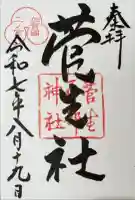 奉拝
菅生社
菅生
神社
令和七年八月十九日